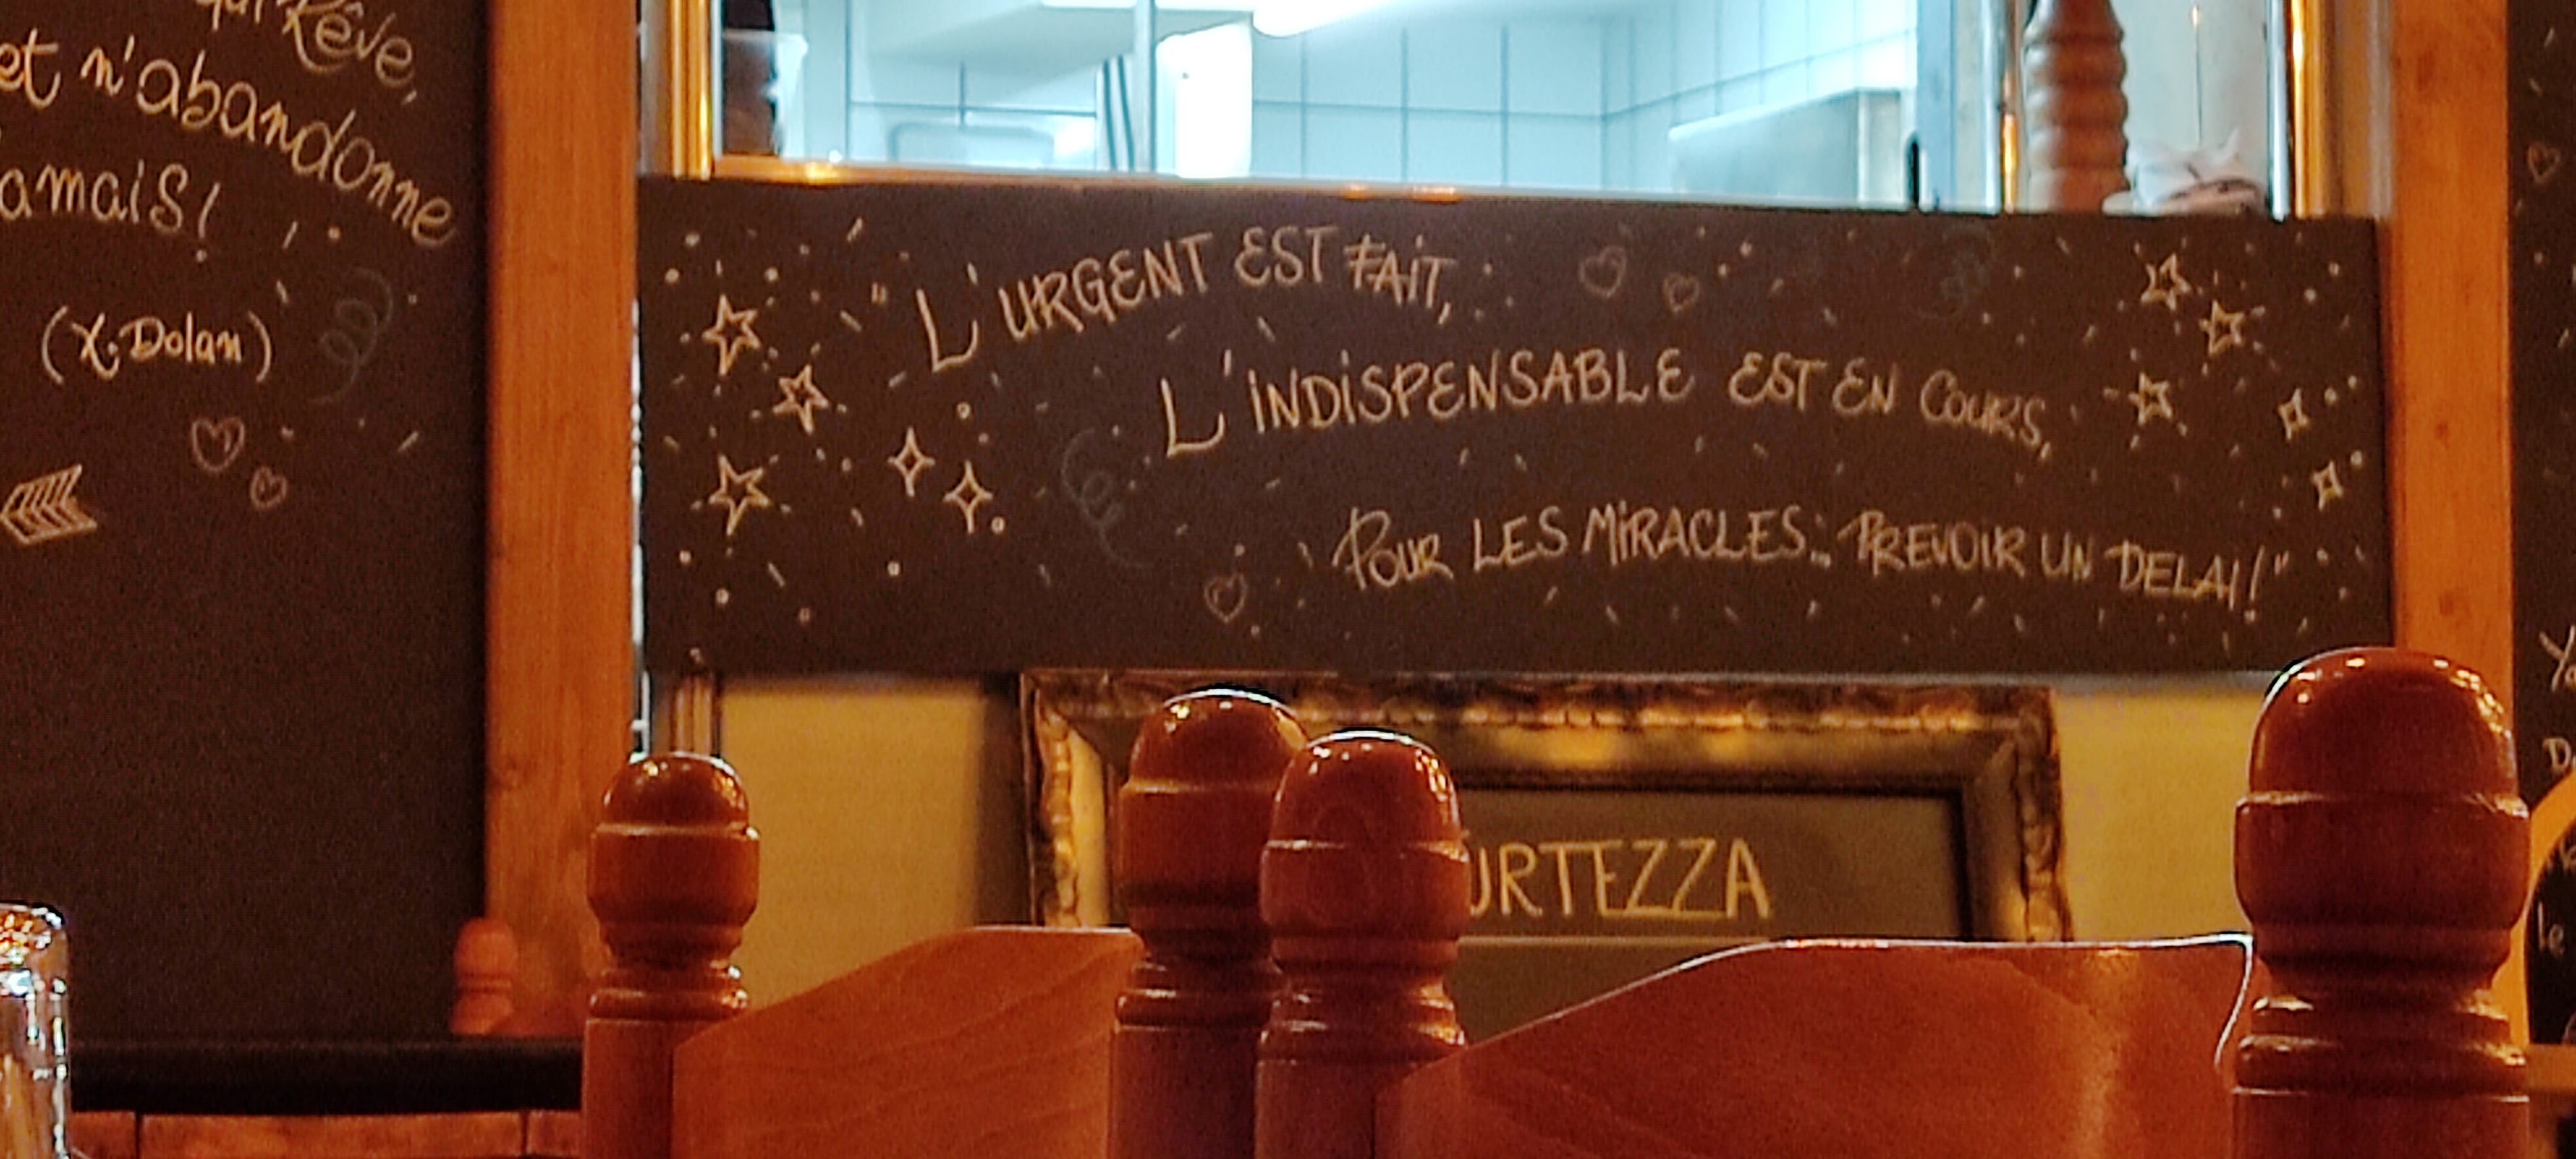 qui Rêve,
et n'abandonne
amais!
(X. Dolan)
" L'URGENT EST FAIT,
L'INDISPENSABLE EST EN COURS,
POUR LES MIRACLES: PREVOIR UN DELAI!"
URTEZZA
le